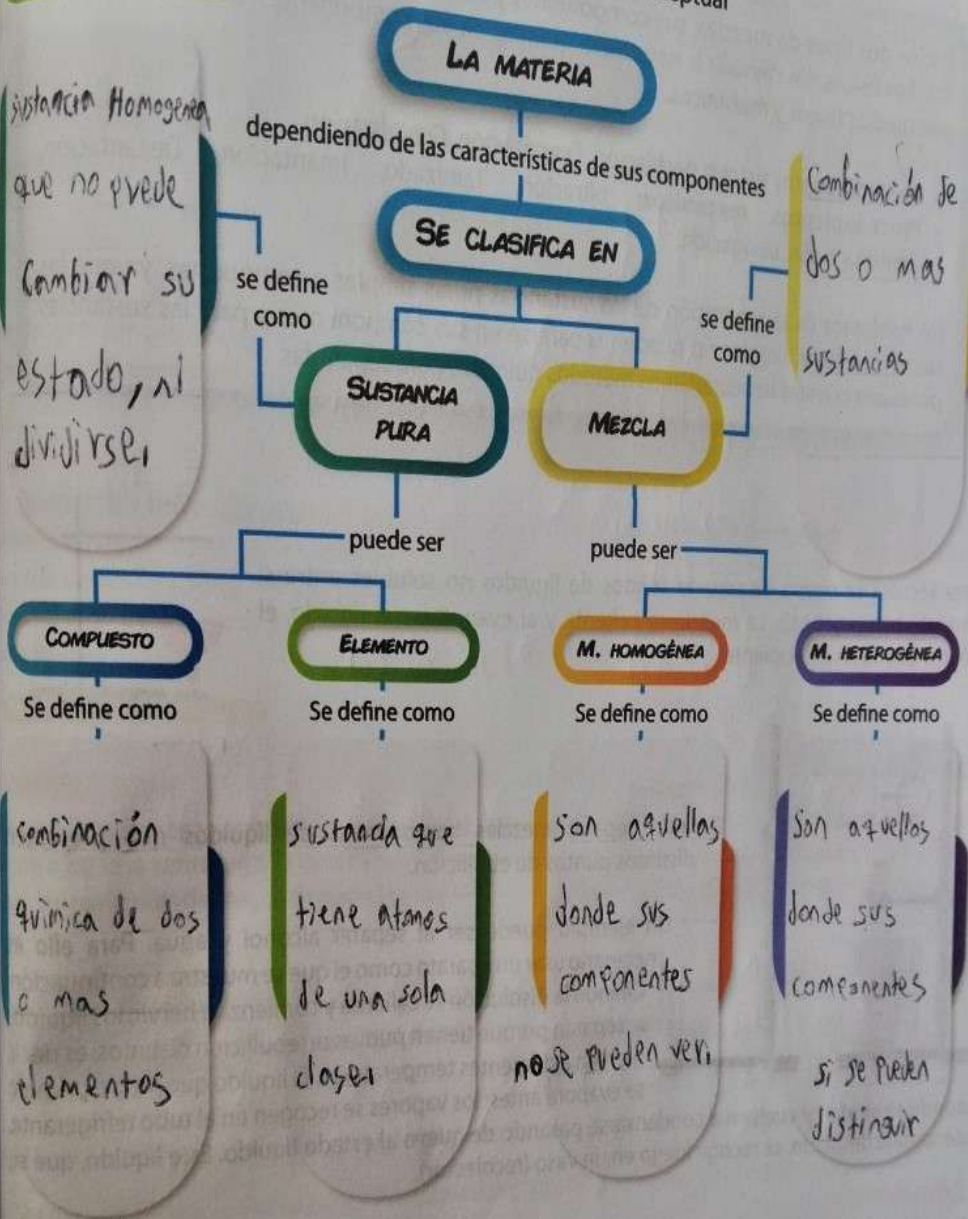 LA MATERIA
dependiendo de las características de sus componentes
SE CLASIFICA EN
Sustancia Homogenea
que no puede
Cambiar su
estado, ni
dividirse,
se define
como
SUSTANCIA
PURA
Combinación de
dos o mas
sustancias
se define
como
MEZCLA
puede ser
puede ser
COMPUESTO
ELEMENTO
M. HOMOGÉNEA
M. HETEROGÉNEA
Se define como
Se define como
Se define como
Se define como
combinación
química de dos
o mas
elementos
sustancia que
tiene atomos
de una sola
clase,
Son aquellas
donde sus
componentes
no se pueden ver,
Son aquellos
donde sus
componentes
si se pueden
distinguir